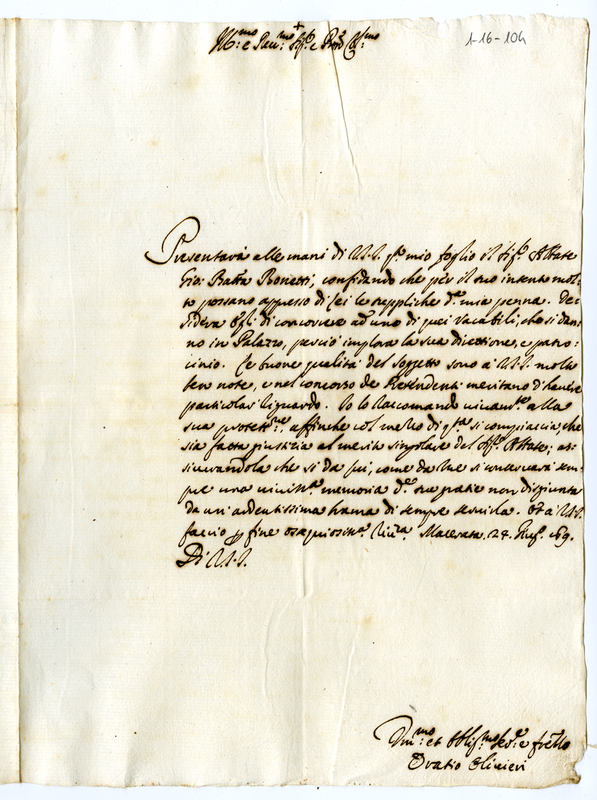 1-16-104
Ill:mo e Rev:mo Sig:r e Pron Col:mo
Presentarà alle mani di V.S. q.to mio foglio il Sig.r Abbate
Gio: Batta Bonetti, confidando che per il suo intento mol-
to possano appresso di Lei le suppliche d.a mia penna. De-
sidera Egli di concorrere ad uno di quei Vacabili, che si dan-
no in Palazzo, perciò implora la sua direttione, e patro-
cinio. Le buone qualità del soggetto sono à V.S. molto
ben note, e nel concorso de Pretendenti meritano d'havere
particolar riguardo. Io lo raccomando vivam.te alla
sua protett.ne, affinche col mezzo di q.sta si compiaccia, che
sia fatta giustizia al merito singolare del Sig.r Abbate; as-
sicurandola che si da lui, come da me si conservarà sem-
pre una viviss.a memoria d.e sue gratie non disgiunta
da un'ardentissima brama di sempre servirla. Et à V.S.
faccio p fine ossequiosiss.a riv.za. Macerata. 24.
Di V.S.
Dev:mo et Obblig:mo Ser:e e frello
Oratio Olivieri